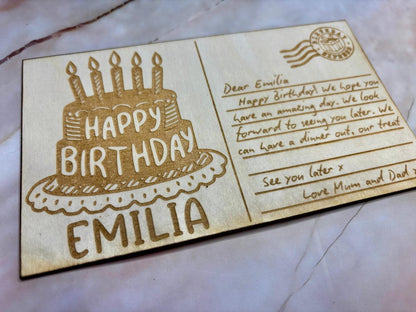 HAPPY
BIRTHDAY
EMILIA
Dear Emilia
Happy Birthday! We hope you
have an amazing day. We look
forward to seeing you later. We
can have a dinner out, our treat
See you later x
Love Mum and Dad x